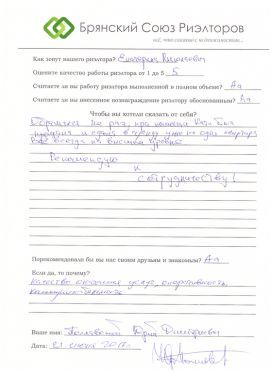 Брянский Союз Риэлторов
Как зовут вашего риэлтора? Екатерина
Оцените качество работы риэлтора от 1 до 5 5
Считаете ли вы работу риэлтора выполненной в полном объеме? Да
Считаете ли вы внесенное вознаграждение риэлтору обоснованным? Да
Чтобы вы хотели сказать от себя?
не раз, при помощи
продана и сдана в аренду уже не одна квартира
Всё всегда на высшем уровне
Рекомендую
к
сотрудничеству!
Порекомендовали бы вы нас своим друзьям и знакомым? Да
Если да, то почему?
Качество оказания услуг, оперативность,
Ваше имя: Юрий Дмитриевич
Дата: 21 июня